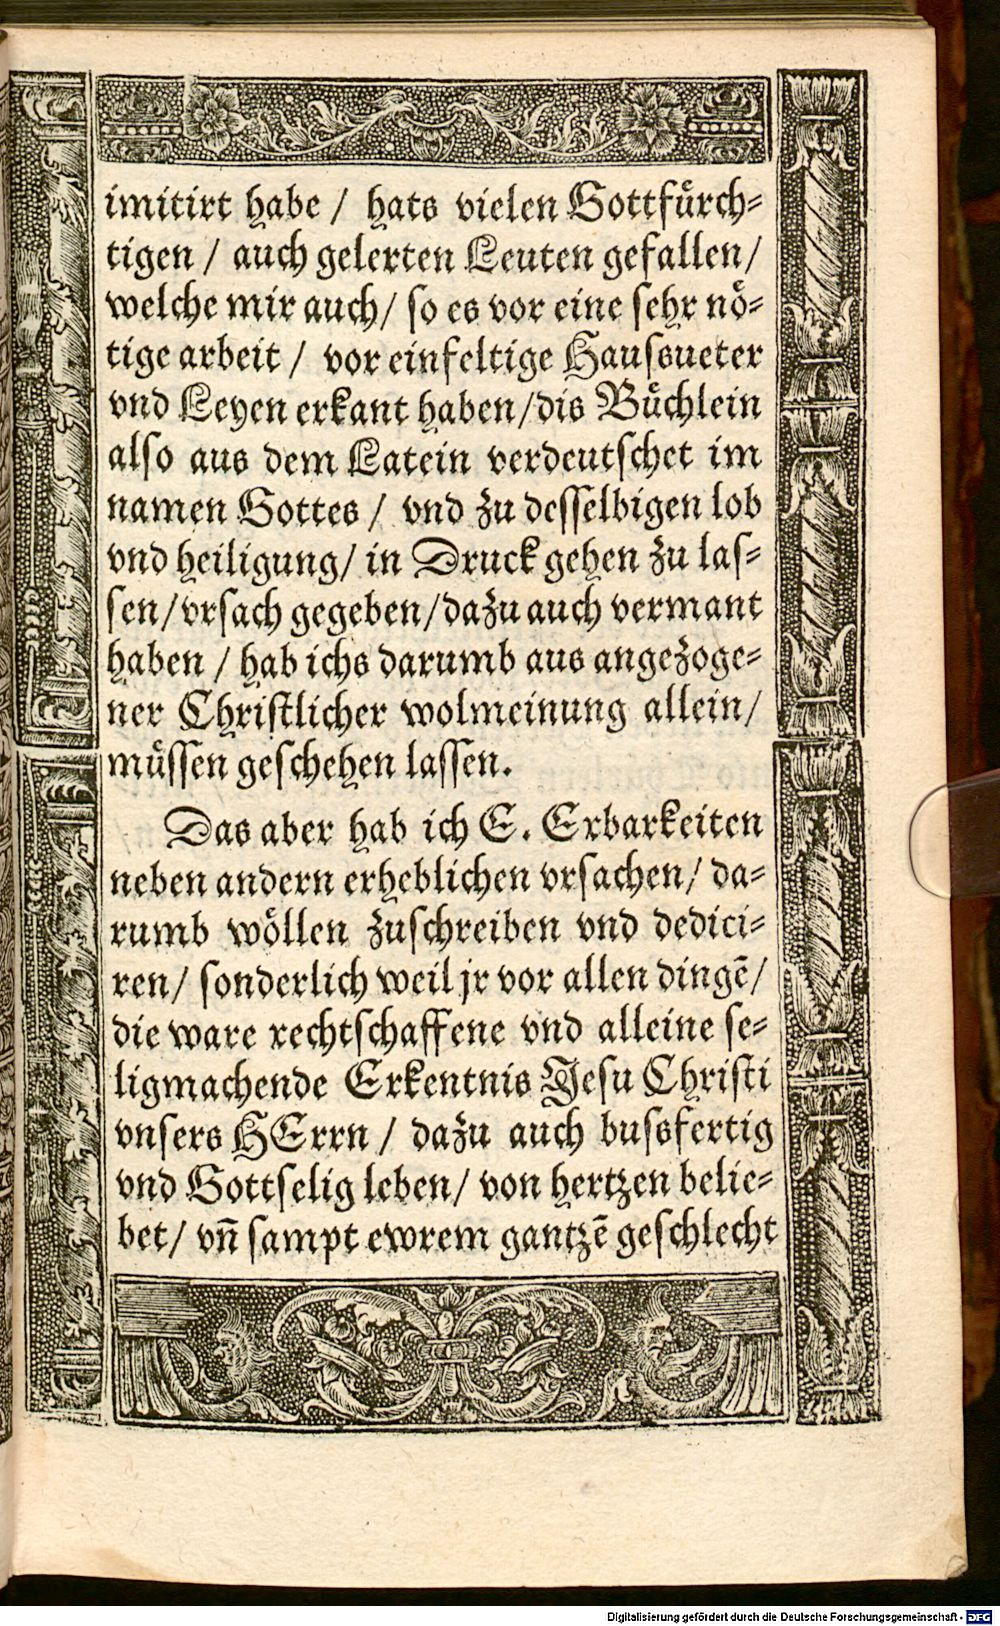 imitirt habe / hats vielen Gottfuͤrch⸗
tigen / auch gelerten Leuten gefallen/
welche mir auch/ so es vor eine sehr noͤ⸗
tige arbeit / vor einfeltige Hausueter
vnd Leyen erkant haben/dis Buͤchlein
also aus dem Latein verdeutschet im
namen Gottes / vnd zu desselbigen lob
vnd heiligung/ in Druck gehen zu las⸗
sen/vrsach gegeben/dazu auch vermant
haben / hab ichs darumb aus angezoge⸗
ner Christlicher wolmeinung allein/
muͤssen geschehen lassen.
Das aber hab ich E. Erbarkeiten
neben andern erheblichen vrsachen/ da⸗
rumb woͤllen zuschreiben vnd dedici⸗
ren/ sonderlich weil jr vor allen dingē/
die ware rechtschaffene vnd alleine se⸗
ligmachende Erkentnis Jesu Christi
vnsers HErrn / dazu auch busfertig
vnd Gottselig leben/ von hertzen belie⸗
bet/ vn̄ sampt ewrem gantzē geschlecht
Digitalisierung gefördert durch die Deutsche Forschungsgemeinschaft - DFG